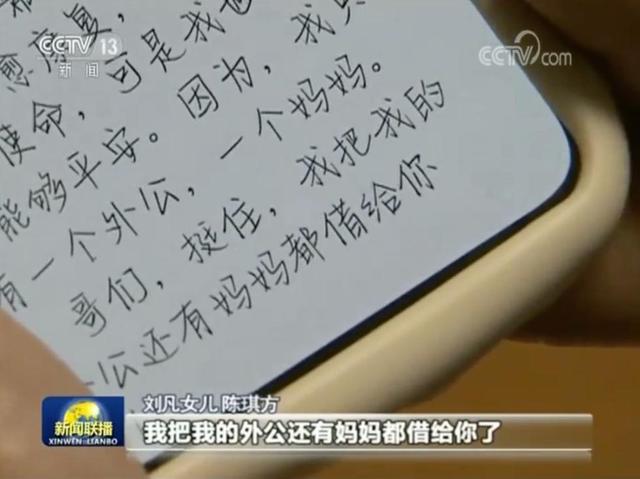 CCTV 13
新闻
CCTV.com
愈康复，
使命，可是我也
能够平安。因为，我只
有一个外公，一个妈妈。
哥们，挺住，我把我的
公还有妈妈都借给你
新闻联播
XINWEN LIANBO
刘凡女儿 陈琪方
我把我的外公还有妈妈都借给你了